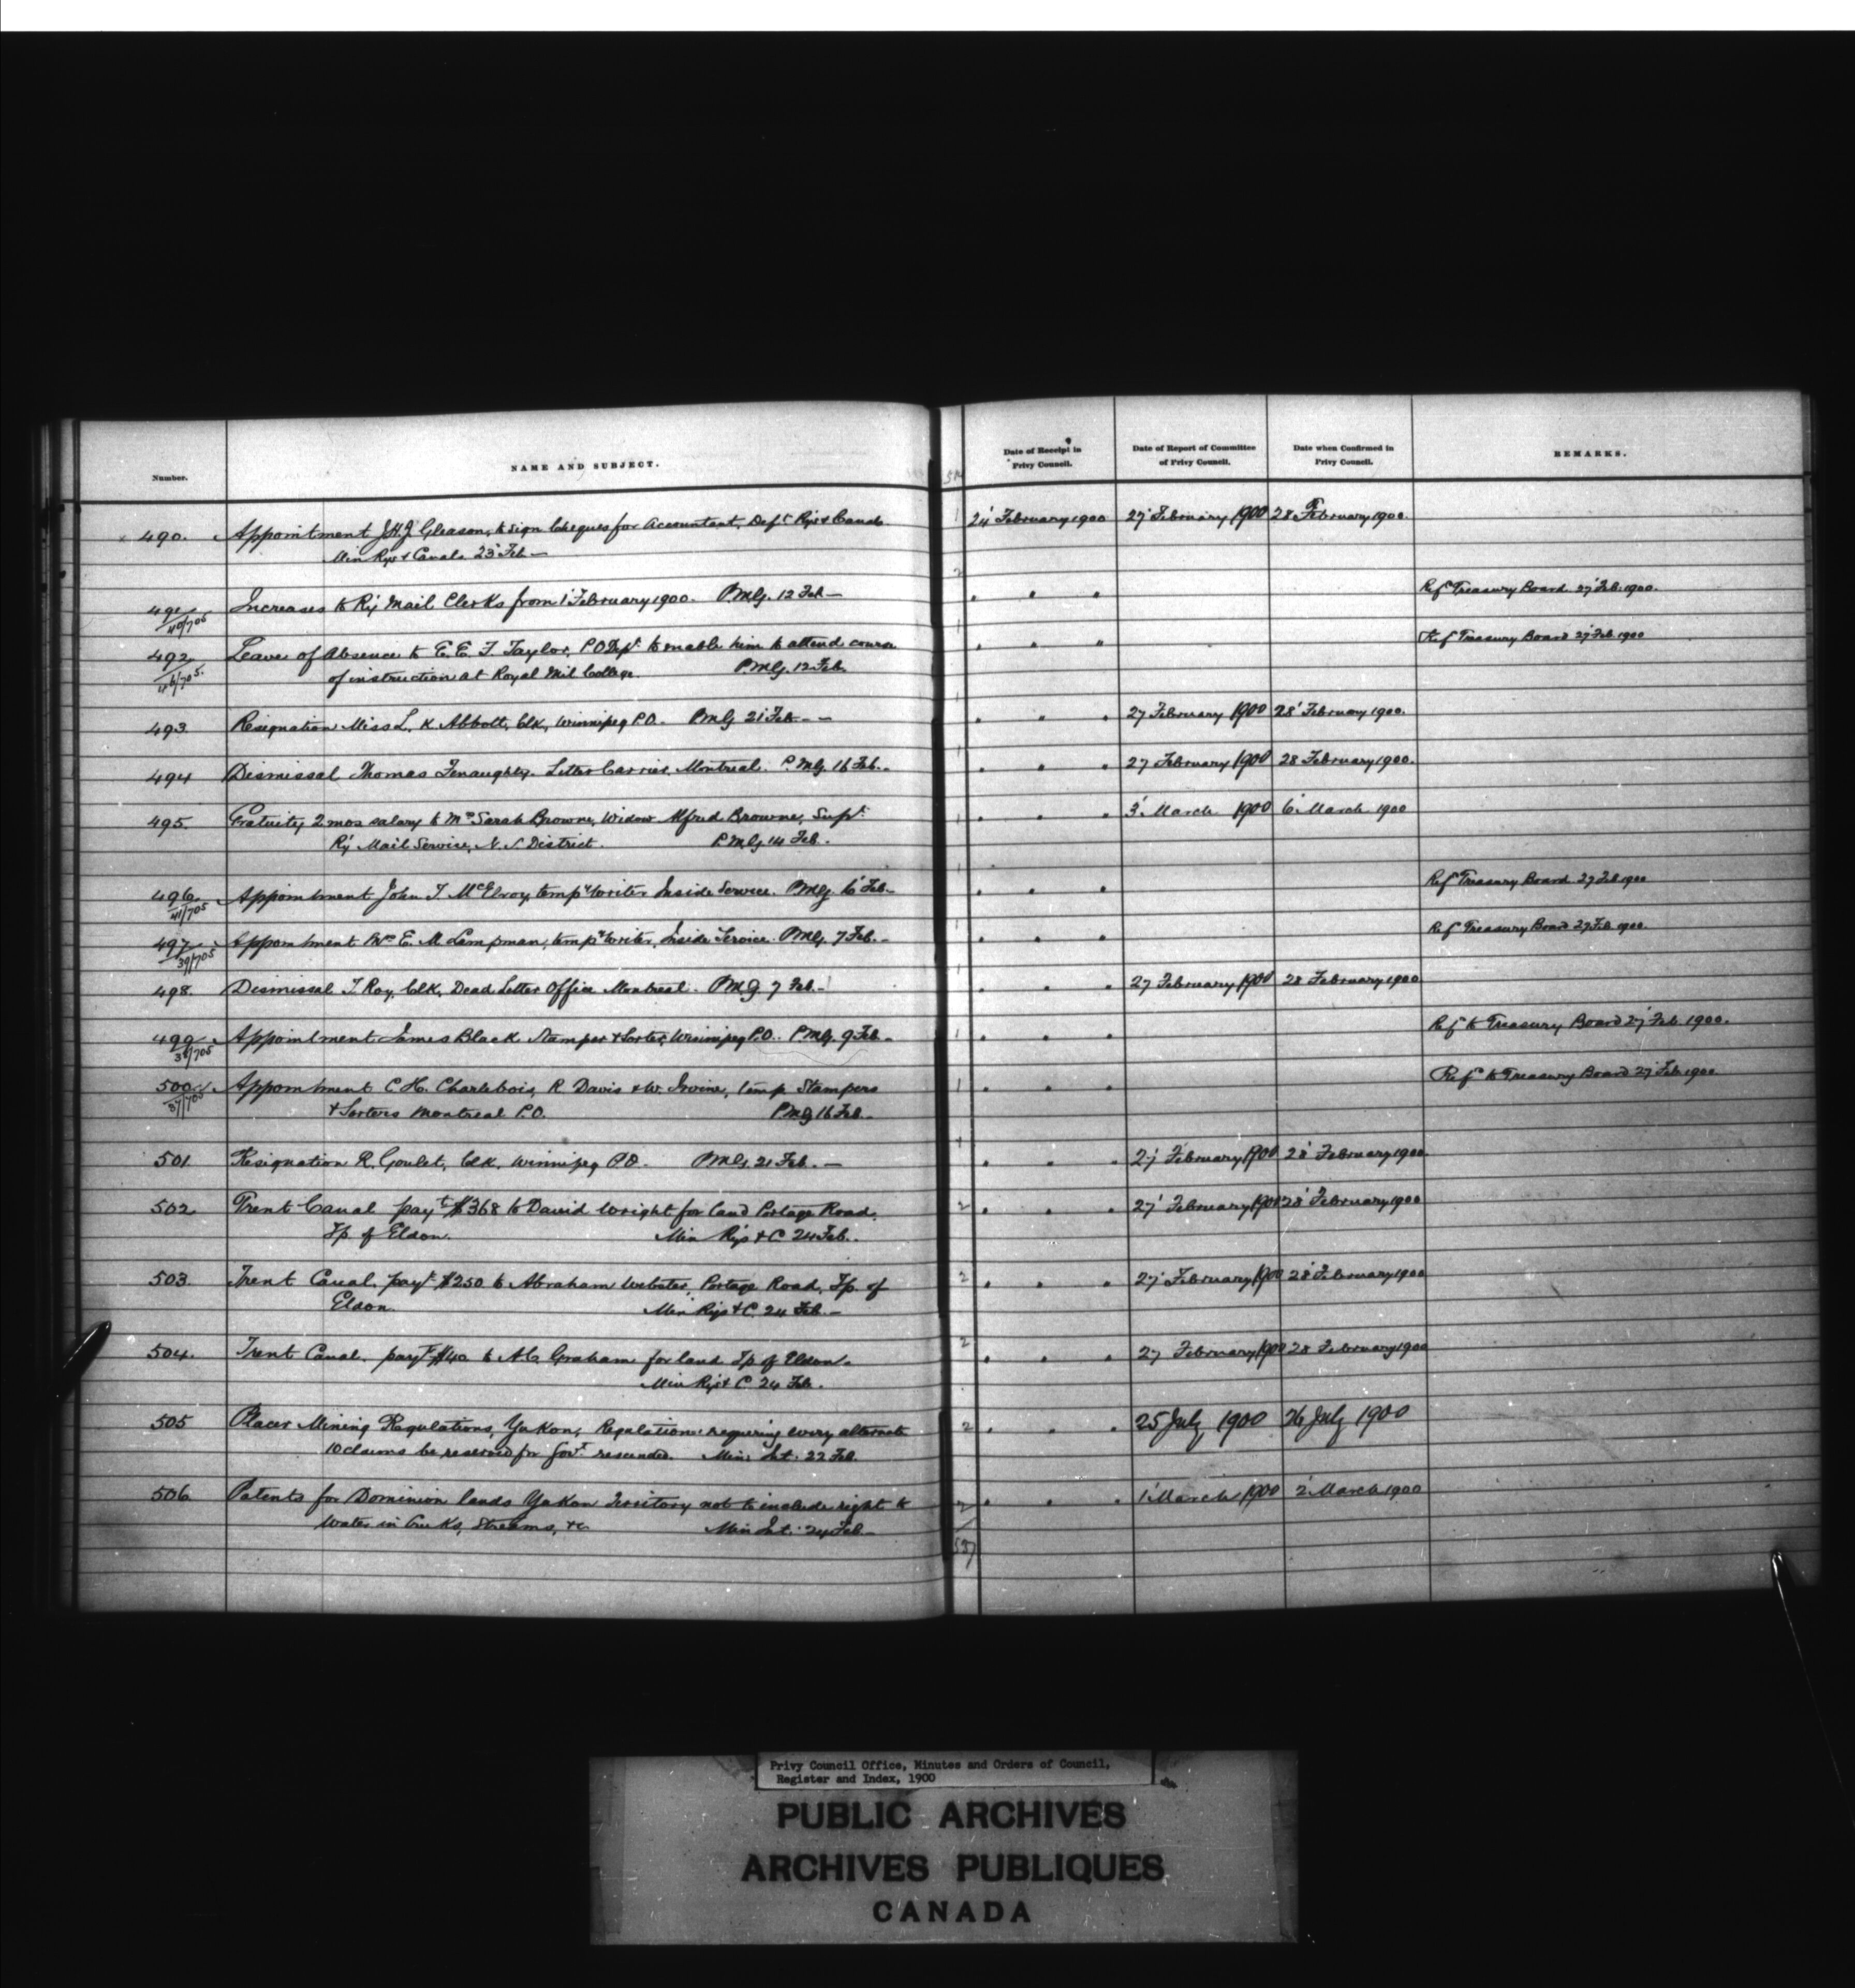 Number.
NAME AND SUBJECT.
Date of Receipt in
Privy Council.
Date of Report of Committee
of Privy Council.
Date when Confirmed in
Privy Council.
REMARKS.
490. Appointment J.H.J. Gleason, to sign cheques for Accountant, Dept Rys & Canals 24 February 1900 27 February 1900 28 February 1900.
Min Rys & Canals 23 Feb —
491 Increases to Ry Mail Clerks from 1 February 1900. PMG. 12 Feb — " " " Ref Treasury Board 27 Feb. 1900.
40/705
492 Leave of Absence to E. E. F. Taylor, P.O Dept to enable him to attend course " " " Ref Treasury Board 27 Feb 1900
46/705. of instruction at Royal Mil College. P.M.G. 12 Feb.
493 Resignation Miss L. K. Abbott, Clk, Winnipeg P.O. PMG 21 Feb — " " " 27 February 1900 28 February 1900.
494 Dismissal Thomas Fenaughty Letter Carrier, Montreal. P.M.G. 16 Feb. " " " 27 February 1900 28 February 1900.
495. Gratuity 2 mos salary to Mrs Sarah Browne, widow Alfred Browne, Supt " " " 3 March 1900 6 March 1900
Ry Mail Service, N.S. District. P.M.G. 14 Feb.
496 Appointment John T. McElroy, tempy writer Inside Service. PMG. 6 Feb — " " " Ref Treasury Board 27 Feb 1900
41/705
497 Appointment Mrs E. M Lampman, tempy writer, Inside Service. PMG. 7 Feb. — " " " Ref Treasury Board 27 Feb 1900.
39/705
498. Dismissal T. Roy, Clk, Dead Letter Office Montreal. PMG 7 Feb. — " " " 27 February 1900 28 February 1900
499 Appointment James Black Stamper & Sorter, Winnipeg P.O. PMG. 9 Feb — " " " Ref to Treasury Board 27 Feb. 1900.
38/705
500 Appointment C H. Charlebois, R Davis & W. Irvine, temp Stampers " " " Ref to Treasury Board 27 Feb 1900
37/705 & Sorters Montreal P.O. PMG 16 Feb. —
501. Resignation R. Goulet, Clk, Winnipeg P.O. PMG 21 Feb. — " " " 27 February 1900 28 February 1900.
502 Trent Canal payt $368 to David Wright for land Portage Road, " " " 27 February 1900 28 February 1900
Tp. of Eldon. Min Rys & C. 24 Feb.
503. Trent Canal, payt $250 to Abraham Webster, Portage Road, Tp. of " " " 27 February 1900 28 February 1900
Eldon. Min Rys & C. 24 Feb. —
504. Trent Canal, payt $40 to Graham for land Tp of Eldon. " " " 27 February 1900 28 February 1900
Min Rys & C. 24 Feb.
505 Placer Mining Regulations, Yukon, Regulations requiring every alternate " " " 25 July 1900 26 July 1900
10 claims be reserved for Govt rescinded. Min. Int. 22 Feb.
506. Patents for Dominion lands Yukon Territory not to include right to " " " 1 March 1900 2 March 1900
water in Creeks, Streams, &c Min Int. 24 Feb —
537
Privy Council Office, Minutes and Orders of Council,
Register and Index, 1900
PUBLIC ARCHIVES
ARCHIVES PUBLIQUES
CANADA